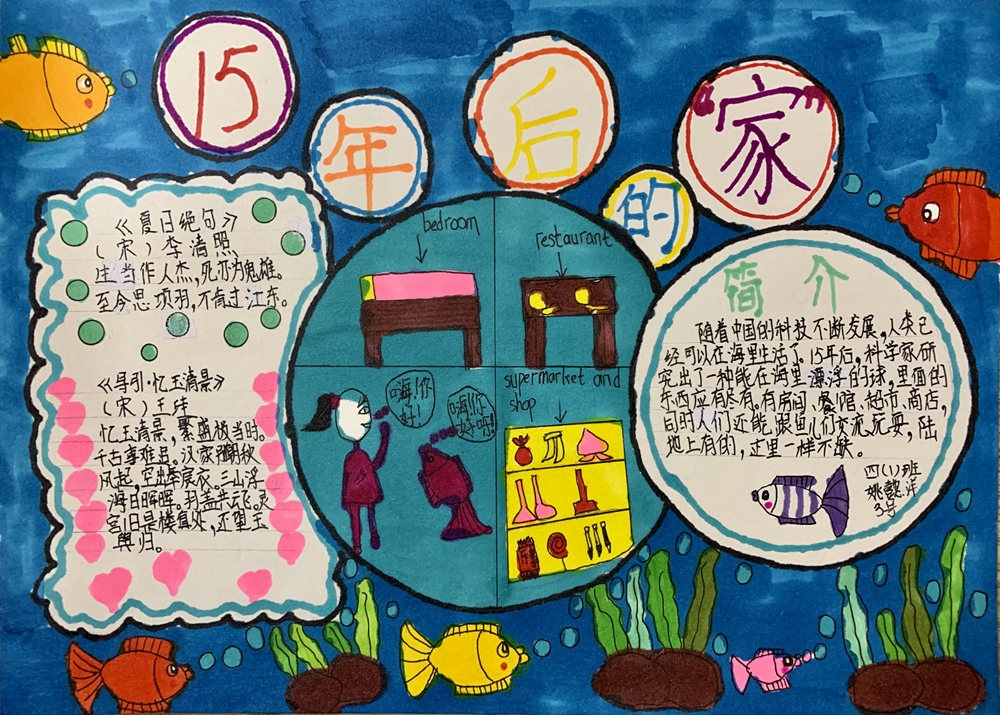 15年后的“家”
《夏日绝句》
(宋)李清照
生当作人杰,死亦为鬼雄。
至今思项羽,不肯过江东。
《导引·忆玉清景》
(宋)王珪
忆玉清景,繁盛极当时。
千古事难追。汉家别朝秋
风起,空出奉宸衣。三山浮
海日晖晖。羽盖共云飞。灵
宫旧是楼真处,还望玉
舆归。
bedroom
restaurant
嗨!你
好!
嗨!你
好呀!
supermarket and
shop
简介
随着中国的科技不断发展,人类已
经可以在海里生活了。15年后,科学家研
究出了一种能在海里漂浮的球,里面的
东西应有尽有。有房间、餐馆、超市、商店,
同时人们还能跟鱼儿们交流、玩耍,陆
地上有的,这里一样不缺。
四(1)班
姚懿洋
3号